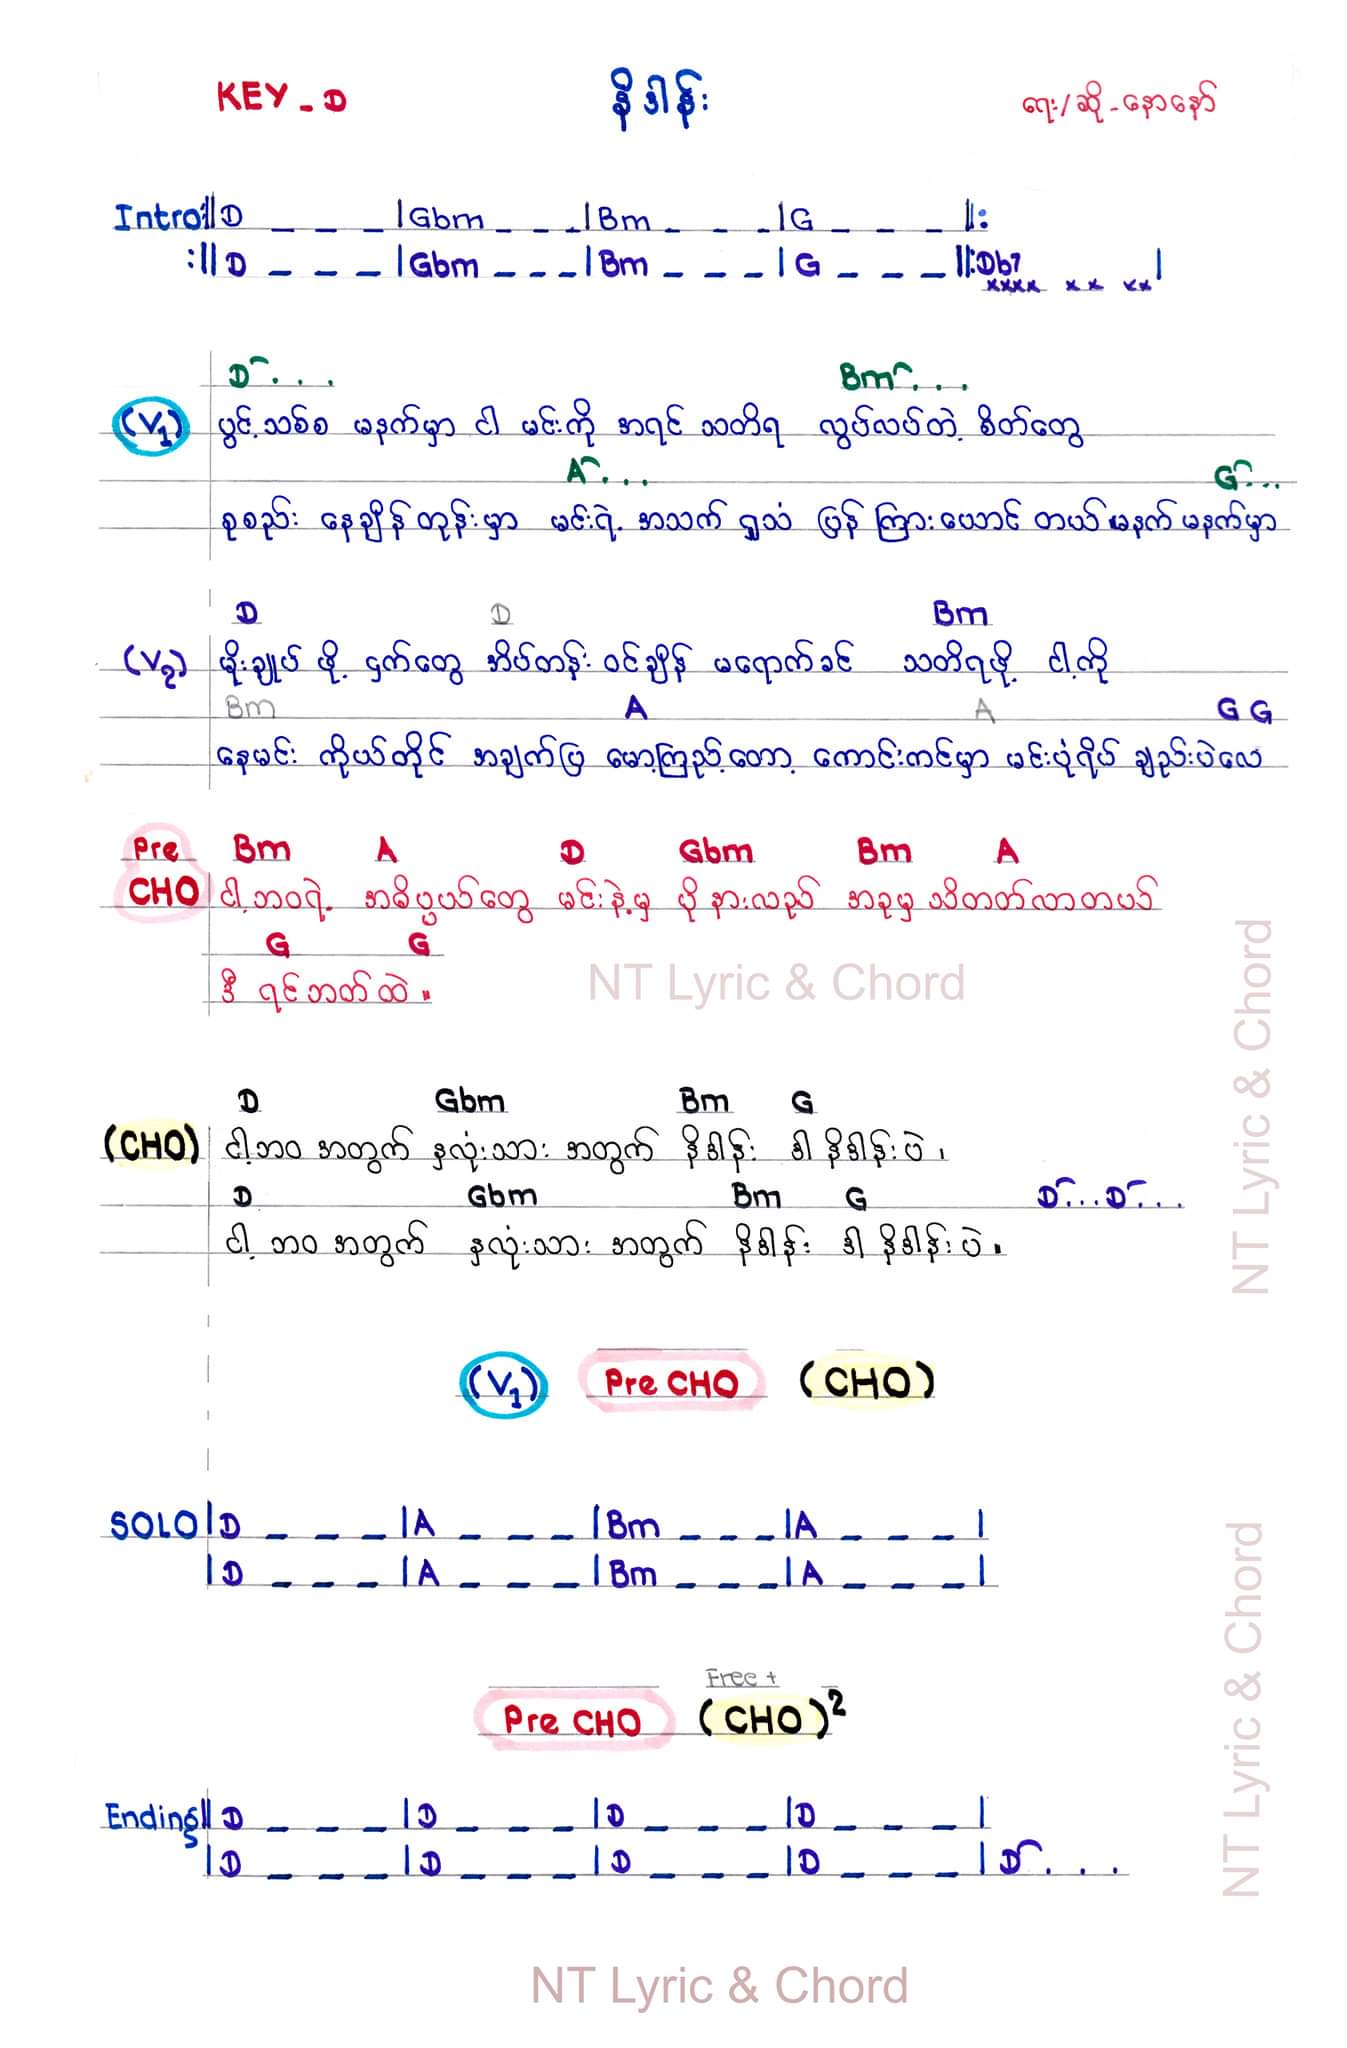 KEY - D
နိဒါန်း
ရေး/ဆို - နောနော်
Intro :|| D _ _ _ | Gbm _ _ _ | Bm _ _ _ | G _ _ _ ||:
:|| D _ _ _ | Gbm _ _ _ | Bm _ _ _ | G _ _ _ ||: Db7 |
xxxx xx xx
D . . . Bm . . .
(V1) ပွင့်သစ်စ မနက်မှာ ငါ မင်းကို အရင် သတိရ လွပ်လပ်တဲ့ စိတ်တွေ
A . . . G . . .
စုစည်း နေချိန်တုန်းမှာ မင်းရဲ့ အသက် ရှုသံ ပြန် ကြားယောင် တယ် မနက် မနက်မှာ
D D Bm
(V2) မိုးချုပ် ဖို့ ငှက်တွေ အိပ်တန်း ဝင်ချိန် မရောက်ခင် သတိရဖို့ ငါ့ကို
Bm A A G G
နေမင်း ကိုယ်တိုင် အချက်ပြ မော့ကြည့်တော့ ကောင်းကင်မှာ မင်းပုံရိပ် ချည်းပဲလေ
Pre Bm A D Gbm Bm A
CHO ငါ့ဘဝရဲ့ အဓိပ္ပယ်တွေ မင်းနဲ့မှ ပို နားလည် အခုမှ သိတတ်လာတယ်
G G
ဒီ ရင်ဘတ်ထဲ ။
D Gbm Bm G
(CHO) ငါ့ဘဝ အတွက် နှလုံးသား အတွက် နိဒါန်း ဒါ နိဒါန်းပဲ ၊
D Gbm Bm G D . . . D . . .
ငါ့ ဘဝ အတွက် နှလုံးသား အတွက် နိဒါန်း ဒါ နိဒါန်းပဲ ။
(V1) Pre CHO (CHO)
SOLO | D _ _ _ | A _ _ _ | Bm _ _ _ | A _ _ _ |
| D _ _ _ | A _ _ _ | Bm _ _ _ | A _ _ _ |
Free +
Pre CHO (CHO)²
Ending || D _ _ _ | D _ _ _ | D _ _ _ | D _ _ _ |
| D _ _ _ | D _ _ _ | D _ _ _ | D _ _ _ | D . . .
NT Lyric & Chord
NT Lyric & Chord
NT Lyric & Chord
NT Lyric & Chord